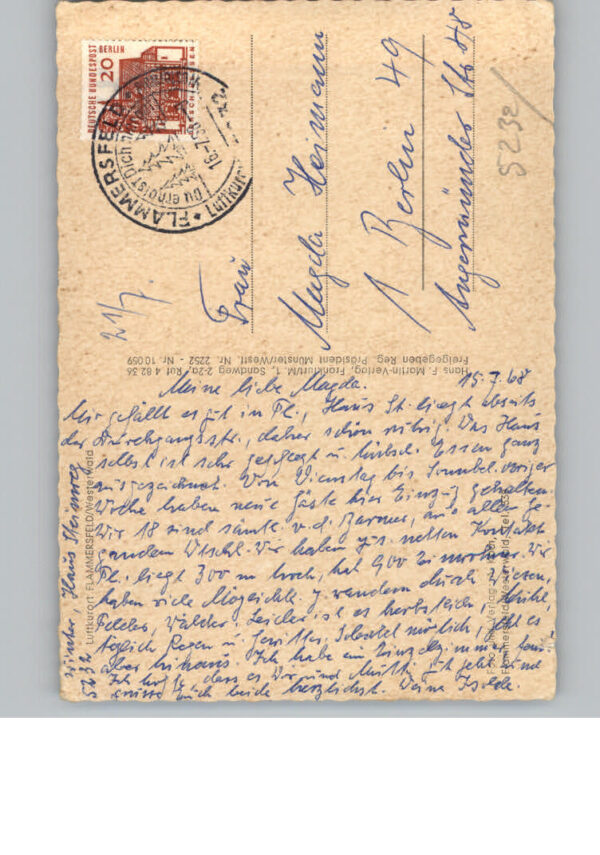 DEUTSCHE BUNDESPOST BERLIN
20
FLAMMERSFELD
Du erholst Dich
16.-7.68
LUFTKURORT
5232
21/7.
Frau
Magda Heimann
1 Berlin 49
Angermünder Str. 48
Hans F. Martin-Verlag, Frankfurt/M. 1, Sandweg 2-2a, Ruf 4 82 36
Freigegeben Reg. Präsident Münster/Westf. Nr. 2252 - Nr. 10 059
Luftkurort FLAMMERSFELD/Westerwald
15.7.68
Meine liebe Magda.
Mir gefällt es gut in Fl., Haus St. liegt abseits
der Durchgangsstr., daher schön ruhig. Das Haus
selbst ist sehr gepflegt u. hübsch. Essen ganz
ausgezeichnet. Von Dienstag bis Sonnabd. voriger
Woche haben neue Gäste hier Einzug gehalten.
Wir 18 sind sämtl. v. d. Barmer, aus allen Ge-
genden Wtschl. Wir haben gu. netten Kontakt.
Fl. liegt 300 m hoch, hat 900 Einwohner. Wir
haben viele Möglichk. z. wandern durch Wiesen,
Felder, Wälder. Leider ist es herbstlich, kühl,
täglich Regen u. Gewitter. Sobald möglich, geht es
aber hinaus. Ich habe ein Einzelzimmer
Ich hoffe, dass es Dir und Mutti gut geht und
grüsse Euch beide herzlichst. Deine Isolde.
5232 Haus Steinweg